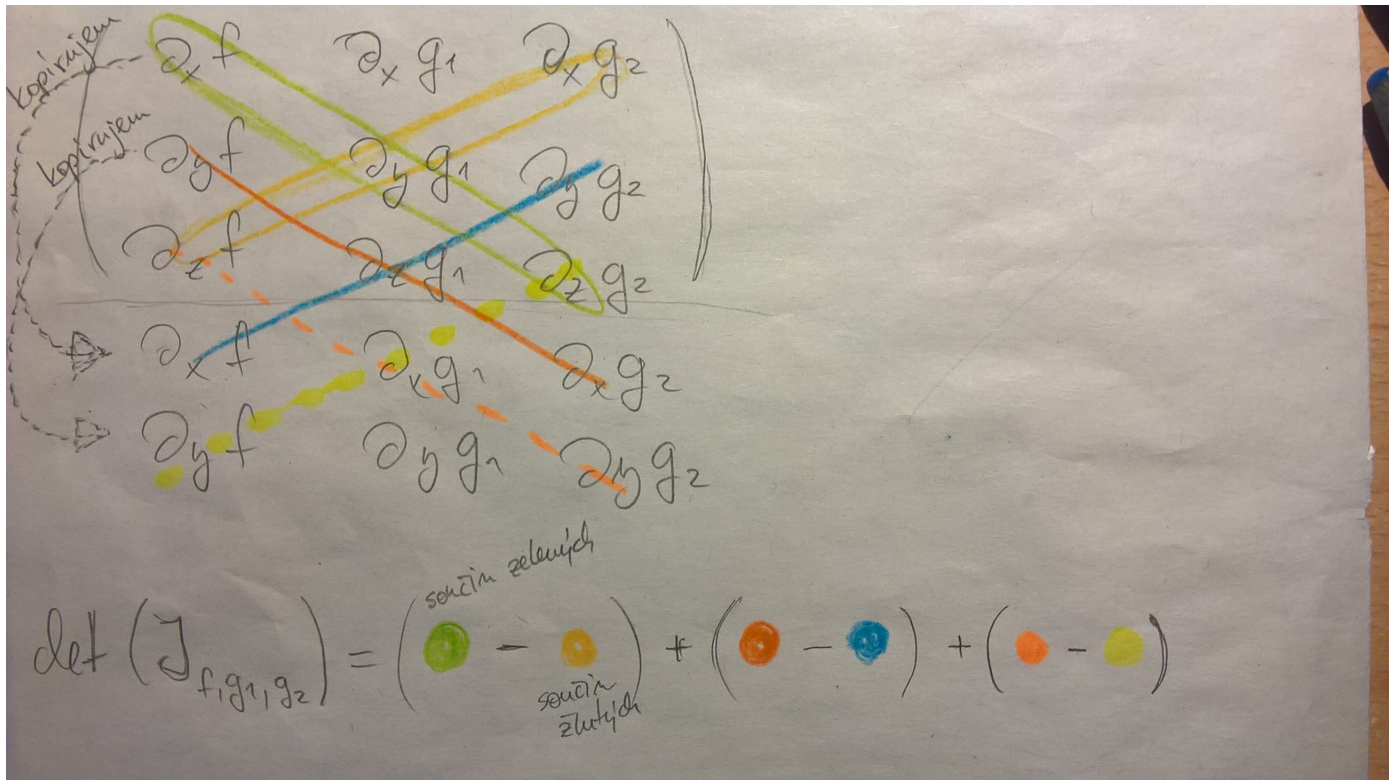 kopírujem
∂x f ∂x g1 ∂x g2
kopírujem
∂y f ∂y g1 ∂y g2
∂z f ∂z g1 ∂z g2
∂x f ∂x g1 ∂x g2
∂y f ∂y g1 ∂y g2
součin zelených
det (J f,g1,g2) = ( - ) + ( - ) + ( - )
součin
žlutých